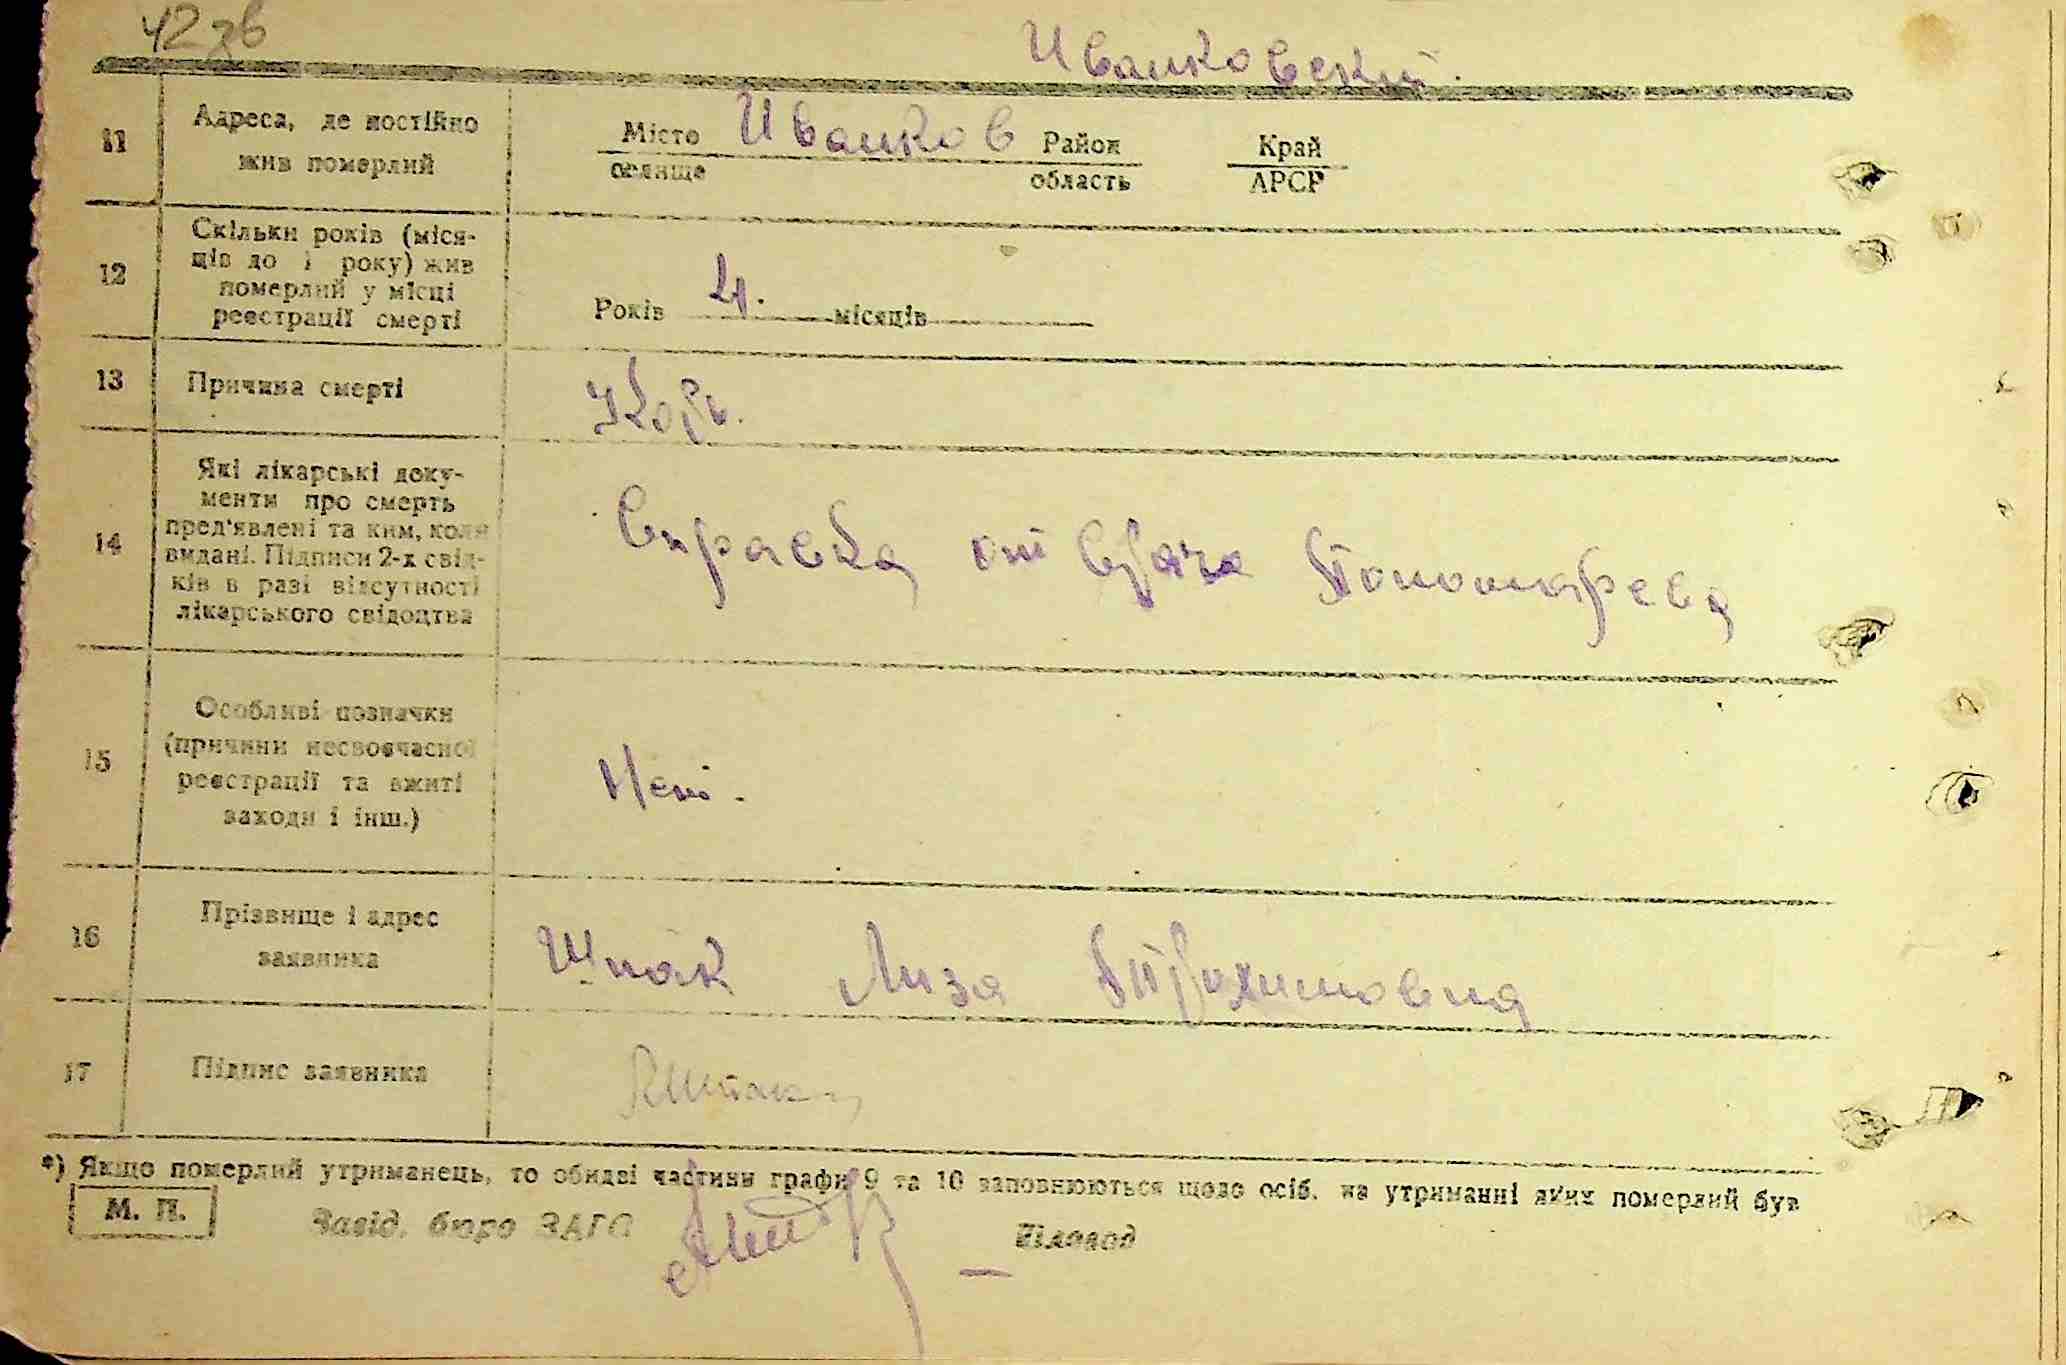 42 зв
Иванковский.
11
Адреса, де постійно
жив померлий
Місто Иванков Район Край
селище область АРСР
12
Скільки років (міся-
ців до 1 року) жив
померлий у місці
реєстрації смерті
Років 4. місяців
13
Причина смерті
Корь.
14
Які лікарські доку-
менти про смерть
пред'явлені та ким, коли
видані. Підписи 2-х свід-
ків в разі відсутності
лікарського свідоцтва
Справка от врача Пономарева
15
Особливі позначки
(причини несвоєчасної
реєстрації та вжиті
заходи і інш.)
Нет.
16
Прізвище і адрес
заявника
Шпак Лиза Трохимовна
17
Підпис заявника
*) Якщо померлий утриманець, то обидві частини графи 9 та 10 заповнюються щодо осіб, на утриманні яких померлий був
М. П.
Завід. бюро ЗАГС
Діловод